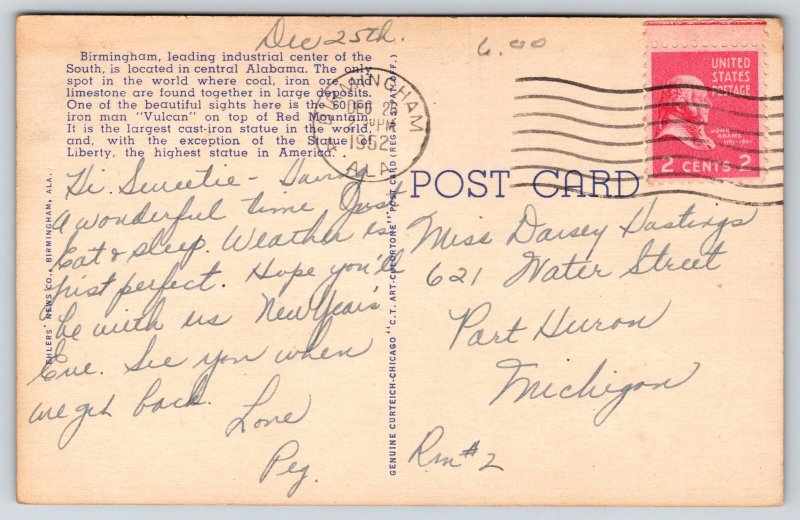 Dec 25th.
6.00
Birmingham, leading industrial center of the
South, is located in central Alabama. The only
spot in the world where coal, iron ore and
limestone are found together in large deposits.
One of the beautiful sights here is the 60 foot
iron man "Vulcan" on top of Red Mountain.
It is the largest cast-iron statue in the world
and, with the exception of the Statue of
Liberty, the highest statue in America.
BIRMINGHAM
DEC 2
PM
1952
ALA
UNITED
STATES
POSTAGE
JOHN
ADAMS
2 CENTS 2
POST CARD
Hi Sweetie - Having
a wonderful time Just
Eat & sleep. Weather is
just perfect. Hope you'll
be with us New Year's
Eve. See you when
we get back.
Love
Peg.
Miss Darsey Hastings
621 Water Street
Port Huron
Michigan
Rm #2
EHLERS' NEWS CO., BIRMINGHAM, ALA.
GENUINE CURTEICH-CHICAGO "C.T. ART-COLORTONE" POST CARD (REG. U.S. PAT. OFF.)